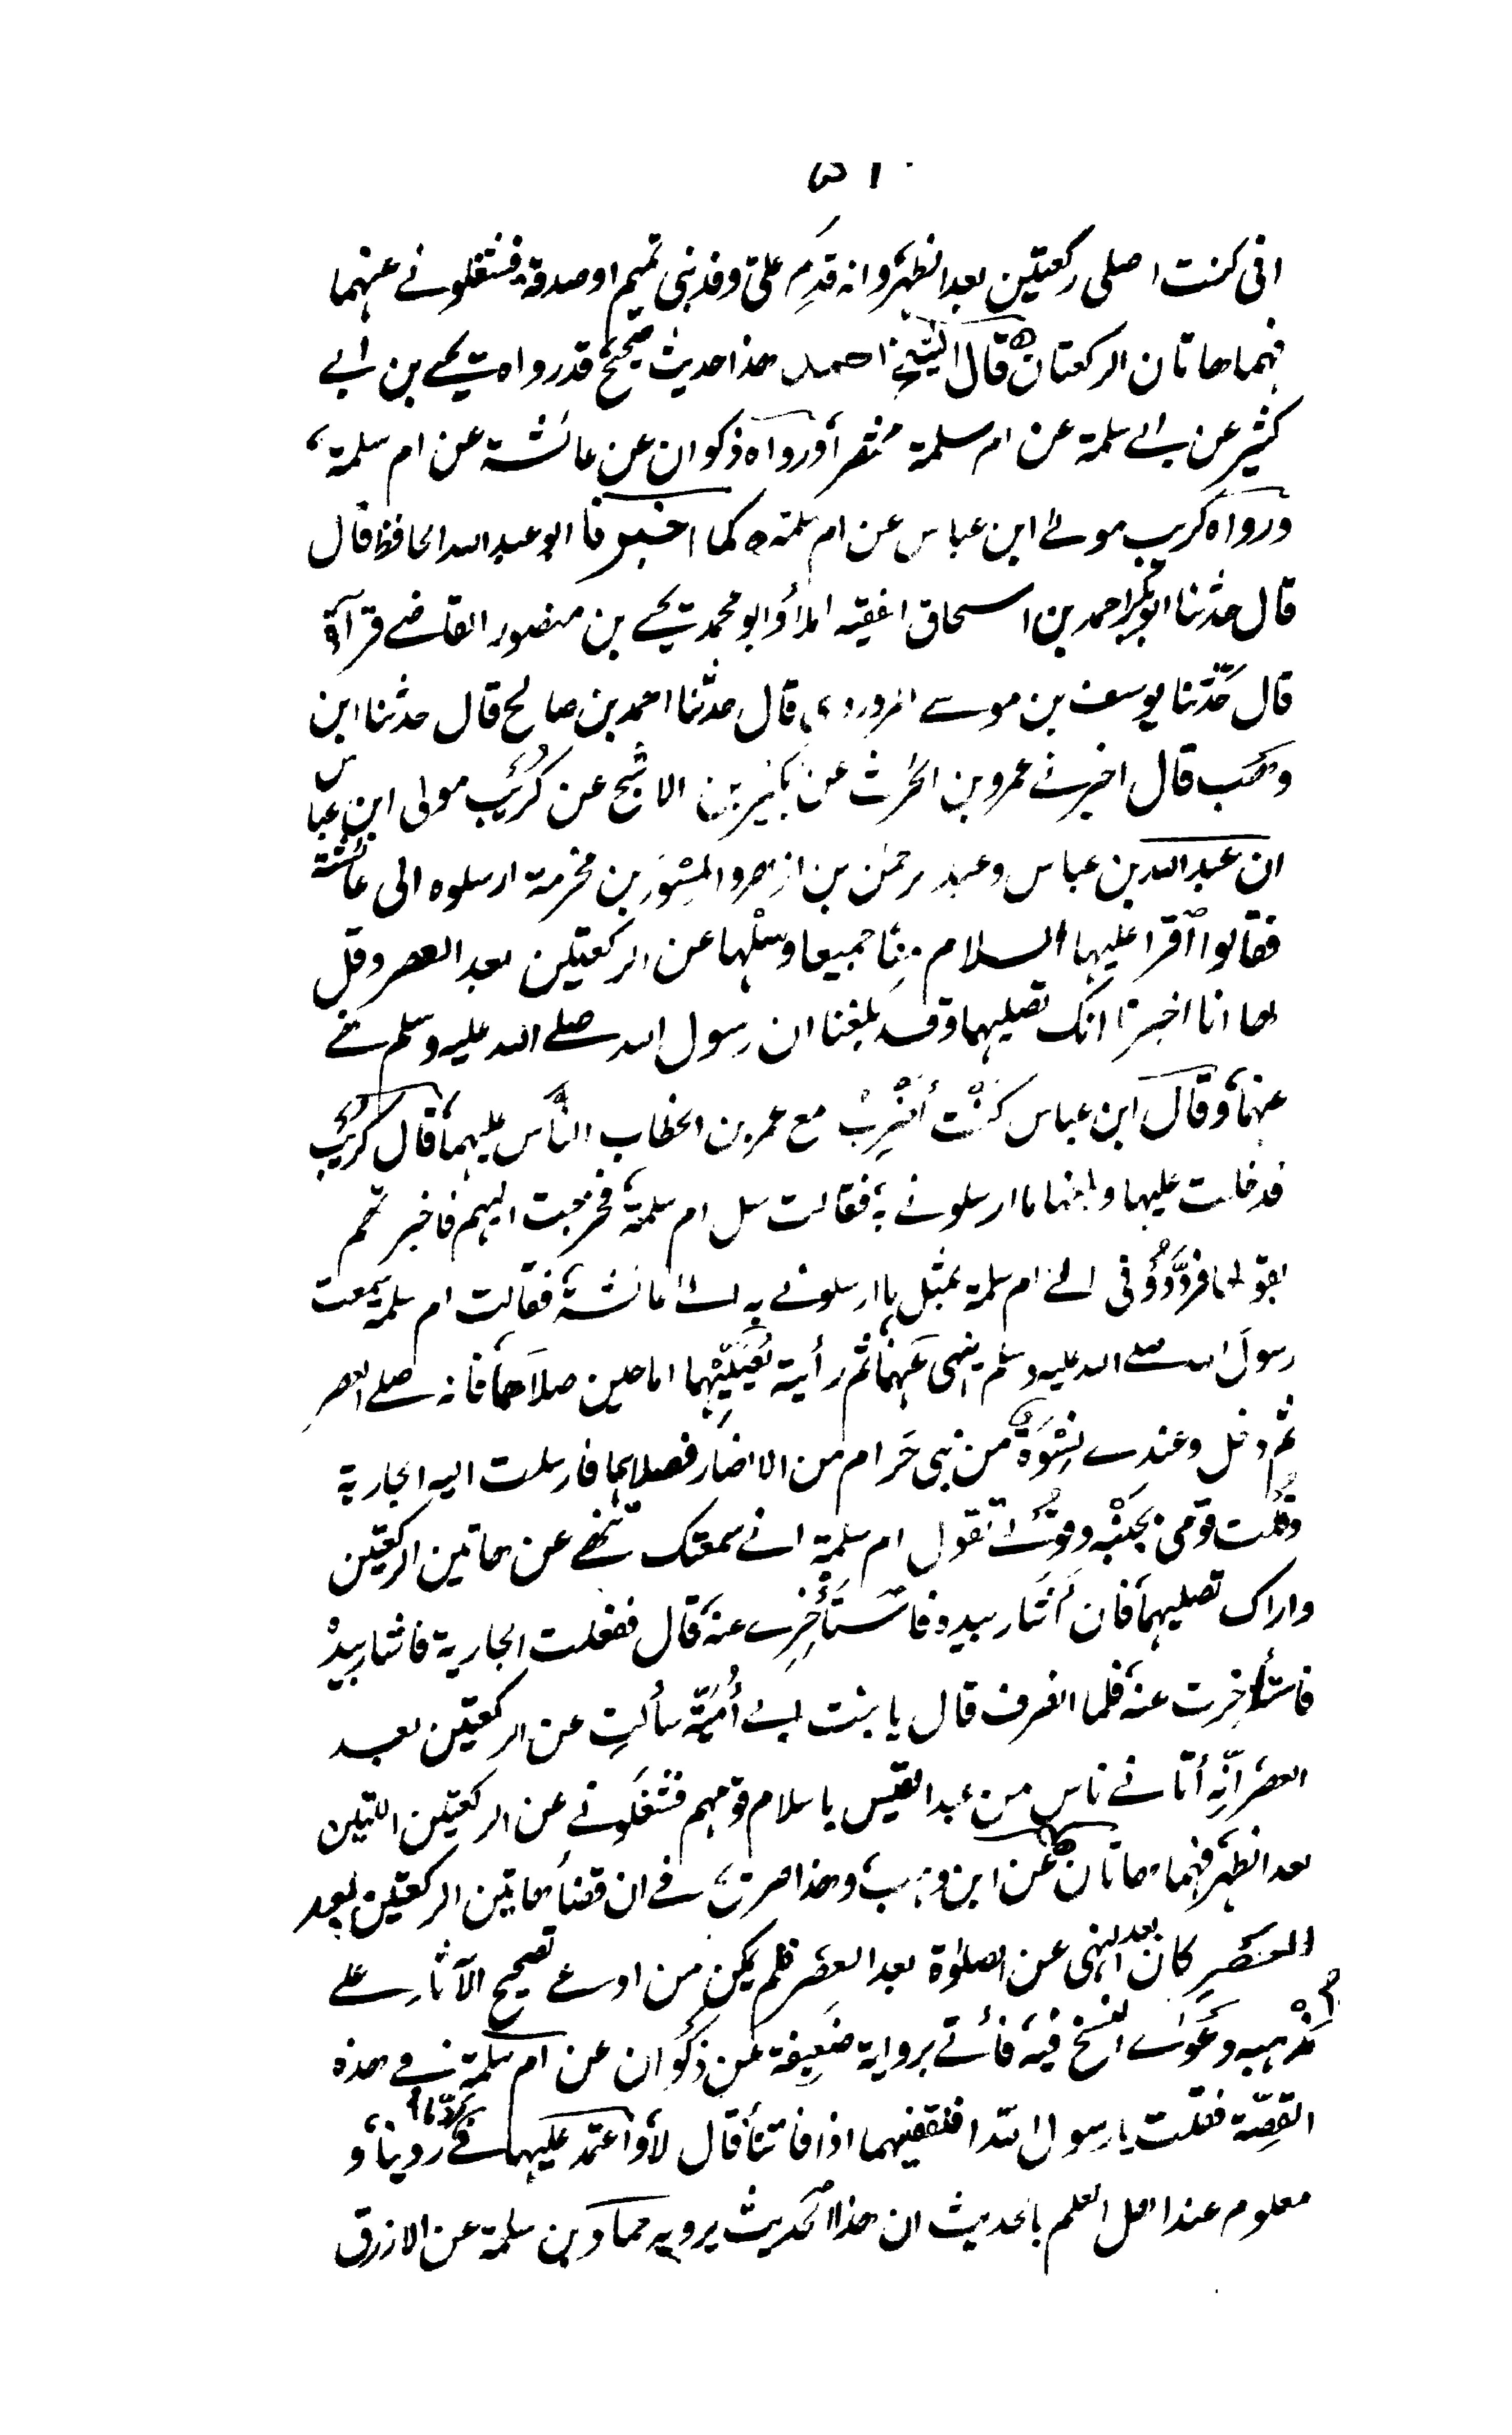 ٥١
انى كنت اصلى ركعتين بعد الظهر وانه قدِم علىّ وفد بنى تميم او صدقة فشغلونے عنهما
فهما هاتان الركعتان ٥ قال الشيخ احمد هذا حديث صحيح قد رواه يحيے بن ابے
كثير عن ابے سلمة عن ام سلمة مختصراً ورواه ذكوان عن عائشة عن ام سلمة،
ورواه كريب مولے ابن عباس عن ام سلمة ٥ كما اخبرنا ابو عبد الله الحافظ قال
قال حدثنا ابو بكر احمد بن اسحاق الفقيه املاءً وابو محمد يحيے بن منصور القاضے قرآءة
قال حدّثنا يوسف بن موسے المروردى قال حدثنا احمد بن صالح قال حدثنا ابن
وهب قال اخبرنے عمرو بن الحرث عن بُكير بن الاشج عن كُرَيب مولى ابن عباس
ان عبد الله بن عباس وعبد الرحمٰن بن ازهر والمِسْوَر بن مخرمة ارسلوه الى عائشة
فقالوا اقرأ عليها السلام مِنّا جميعا وسَلْها عن الركعتين بعد العصر وقل
لها انا اخبرنا انك تصليهما وقد بلغنا ان رسول الله صلے الله عليه وسلم نهے
عنهما، وقال ابن عباس كنْت أضْرِبُ مع عمر بن الخطاب النّاس عليهما، قال كُرَيب
فدخلت عليها وبلغتها ما ارسلونے به، فقالت سل ام سلمة، فخرجت اليهم فاخبرتهم
بقولها فردُّونى الے ام سلمة بمثل ما ارسلونے به الے عائشة، فقالت ام سلمة سمعت
رسول الله صلے الله عليه وسلم ينهى عنهما ثم رأيته يُصَلِّيْهما اما حين صلاهما فانه صلے العصر
ثم دخل وعندے نِسْوَةٌ من بنى حَرام من الانصار فصلاهما فارسلت اليه الجارية
وقلت قومى بجَنْبه وقولے له تقول ام سلمة انے سمعتك تنهٰے عن هاتين الركعتين
واراك تصليهما، فان أشار بيده فاستَأْخِرے عنه، قال ففعلت الجارية فاشار بيده
فاستأخرت عنه، فلما انصرف قال يا بنت ابے أُمَيّة سألتِ عن الركعتين بعد
العصر، انّه أتانے ناس من عبد القيس باسلام قومهم فشغلونے عن الركعتين اللتين
بعد الظهر، فهما هاتان ٥ عن ابن وهب، وهذا صريح فے ان قضاءَ هاتين الركعتين بعد
العصر كان بعد النهى عن الصلوٰة بعد العصر فلم يمكن من ادعے تصحيح الآثار علے
مذهبه دعوى النسخ فيه، فأتے برواية ضعيفة عن ذكوان عن ام سلمة فے هذه
القصّة فقلت يا رسول الله افنقضيهما اذا فاتتنا قال لا، واعتمد عليها فے ردّ ما روينا، و
معلوم عند اهل العلم بالحديث ان هذا الحديث يرويه حماد بن سلمة عن الازرق